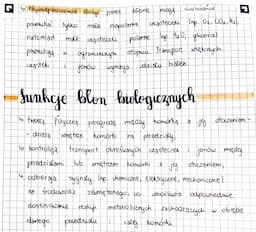 przez błonę mogą swobodnie
przenikać tylko małe niepolarne cząsteczki (np. O₂, CO₂, N₂),
natomiast małe cząsteczki polarne (np. H₂O, glicerol)
przenikają w ograniczonym stopniu. Transport większych
cząstek i jonów wymaga udziału białek
funkcje błon biologicznych
↳ tworzą fizyczną przegrodę między komórką a jej otoczeniem
- dzielą wnętrze komórki na przedziały,
↳ kontrolują transport określonych cząsteczek i jonów między
przedziałami lub wnętrzem komórki a jej otoczeniem,
↳ odbierają sygnały (np. chemiczne, elektryczne, mechaniczne)
ze środowiska zewnętrznego, co umożliwia odpowiednie
dostosowanie reakcji metabolicznych zachodzących w obrębie
danego przedziału i całej komórki